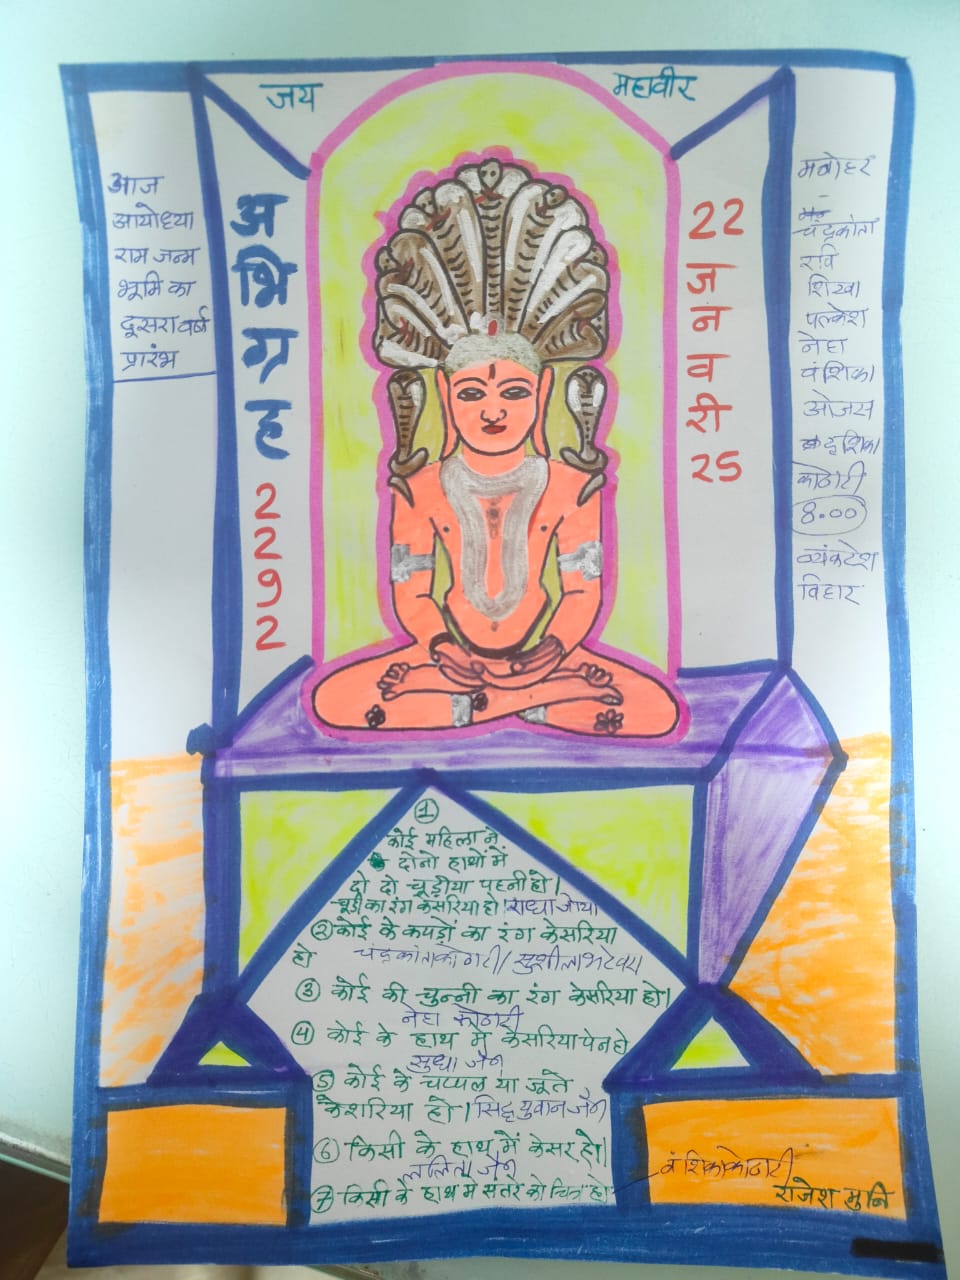 जय महावीर
आज
आयोध्या
राम जन्म
भूमि का
दूसरा वर्ष
प्रारंभ
अ
भि
ग्र
ह
2
2
9
2
22
ज
न
व
री
25
मनोहर
चंद्रकांता
रवि
शिखा
पल्केश
नेहा
वंशिका
ओजस
दृशिका
कोठारी
8.00
व्यंकटेश
विहार
1
कोई महिला ने
दोनो हाथों में
दो दो चूड़ीया पहनी हो।
चूड़ी का रंग केसरिया हो। राधा
2 कोई के कपड़ों का रंग केसरिया
हो चंद्रकांता कोठारी/सुशीला भटेवरा
3 कोई की चुन्नी का रंग केसरिया हो।
नेहा कोठारी
4 कोई के हाथ में केसरिया पेन हो
सुधा जैन
5 कोई के चप्पल या जूते
केशरिया हो। सिद्ध युवान जैन
6 किसी के हाथ में केसर हो।
ललिता जैन
7 किसी के हाथ में संतरे का चित्र हो
वंशिका कोठारी
राजेश मुनि